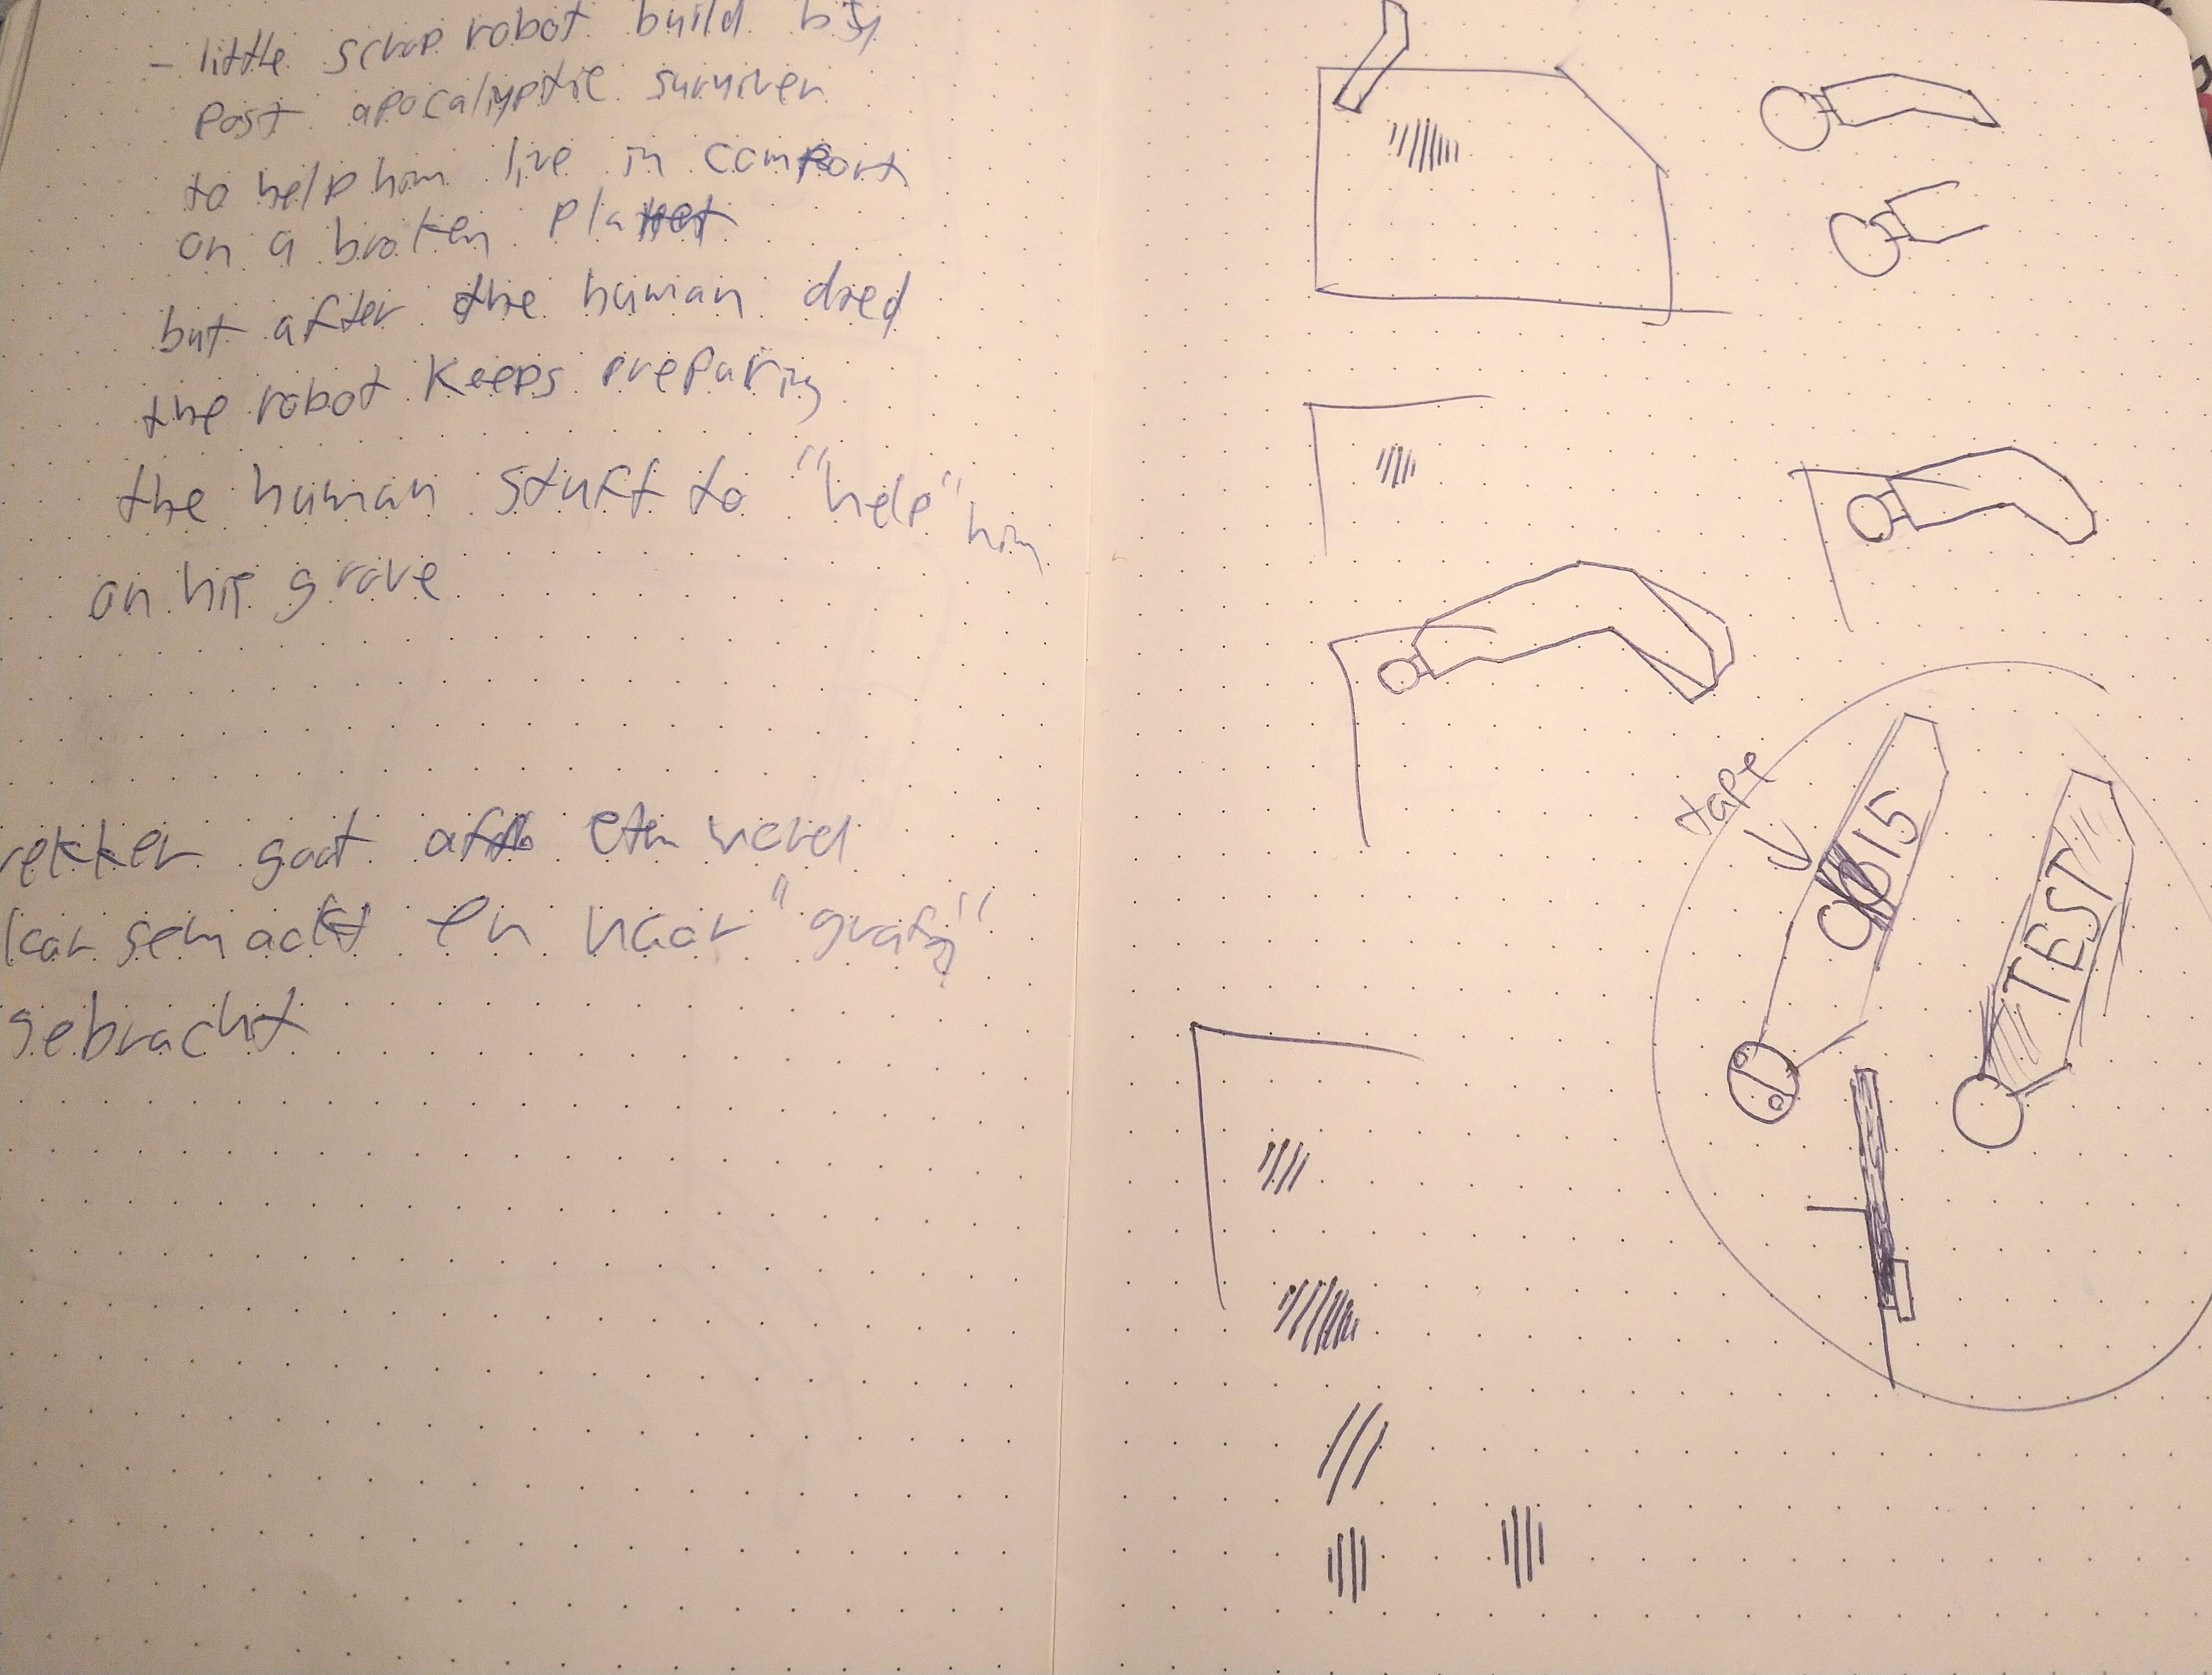 - little scrap robot build by
post apocalyptic surviver
to help him live in comfort
on a broken planet
but after the human died
the robot keeps preparing
the human stuff to "help" him
on his grave
wekker gaat af en word
klaar gemaakt en naar "graf"
gebracht
tape
TEST